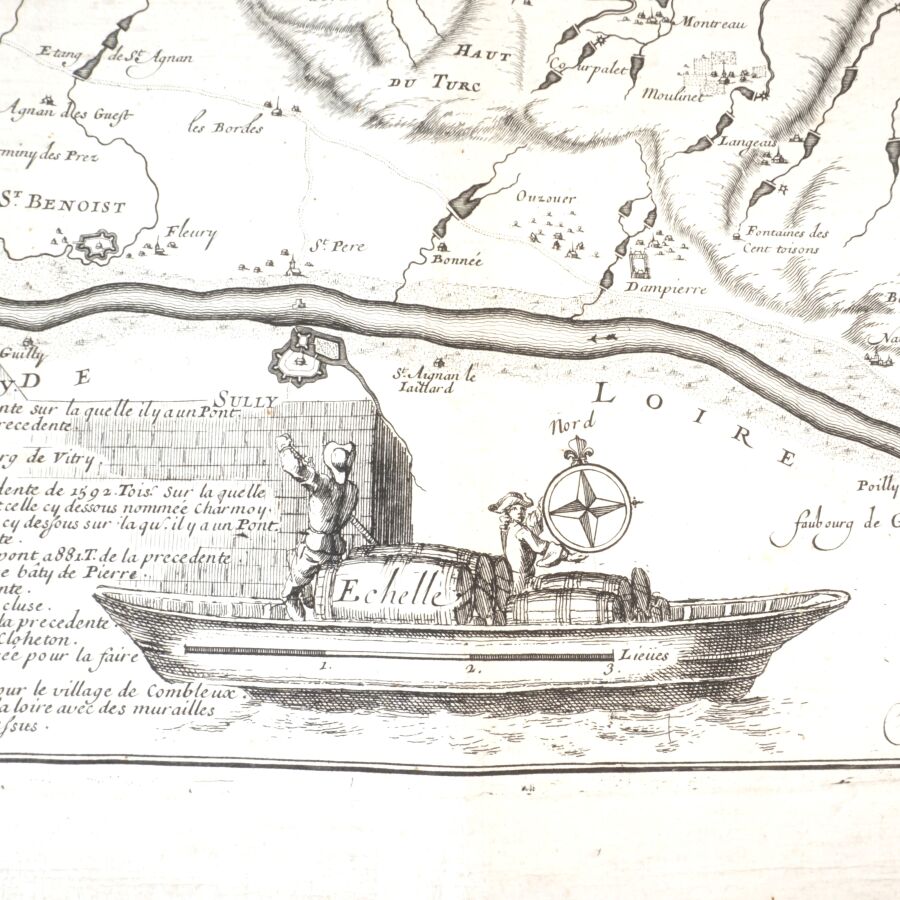 Montreau
Etang de St. Agnan
HAUT
DU TURC
Courpalet
Moulinet
Agnan des Guest
les Bordes
Langeais
miny des Prez
ST. BENOIST
Ouzouer
Fleury
St. Pere
Bonnée
Fontaines des
Cent toisons
Dampierre
Guilly
St. Aignan le
Iaillard
DE
LOIRE
SULLY
nte sur la quelle il y a un Pont.
recedente.
Nord
rg de Vitry,
Poilly
dente de 1592. Tois. sur la quelle
celle cy dessous nommée Charmoy.
cy dessous sur la qu. il y a un Pont.
faubourg de G
té.
pont a 881T. de la precedente.
e bâty de Pierre.
nte.
cluse.
la precedente
Cloheton.
ée pour la faire
Echelle
Lieues
1. 2. 3.
our le village de Combleux.
a loire avec des murailles
essus.